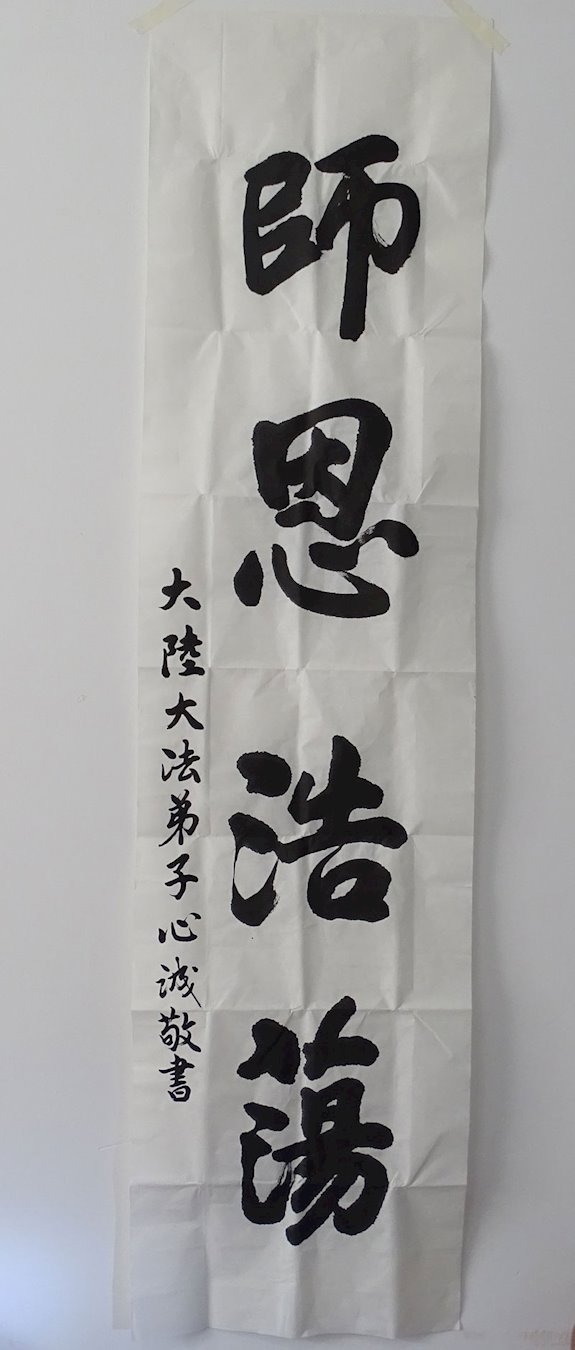 師恩浩蕩
大陸大法弟子心誠敬書